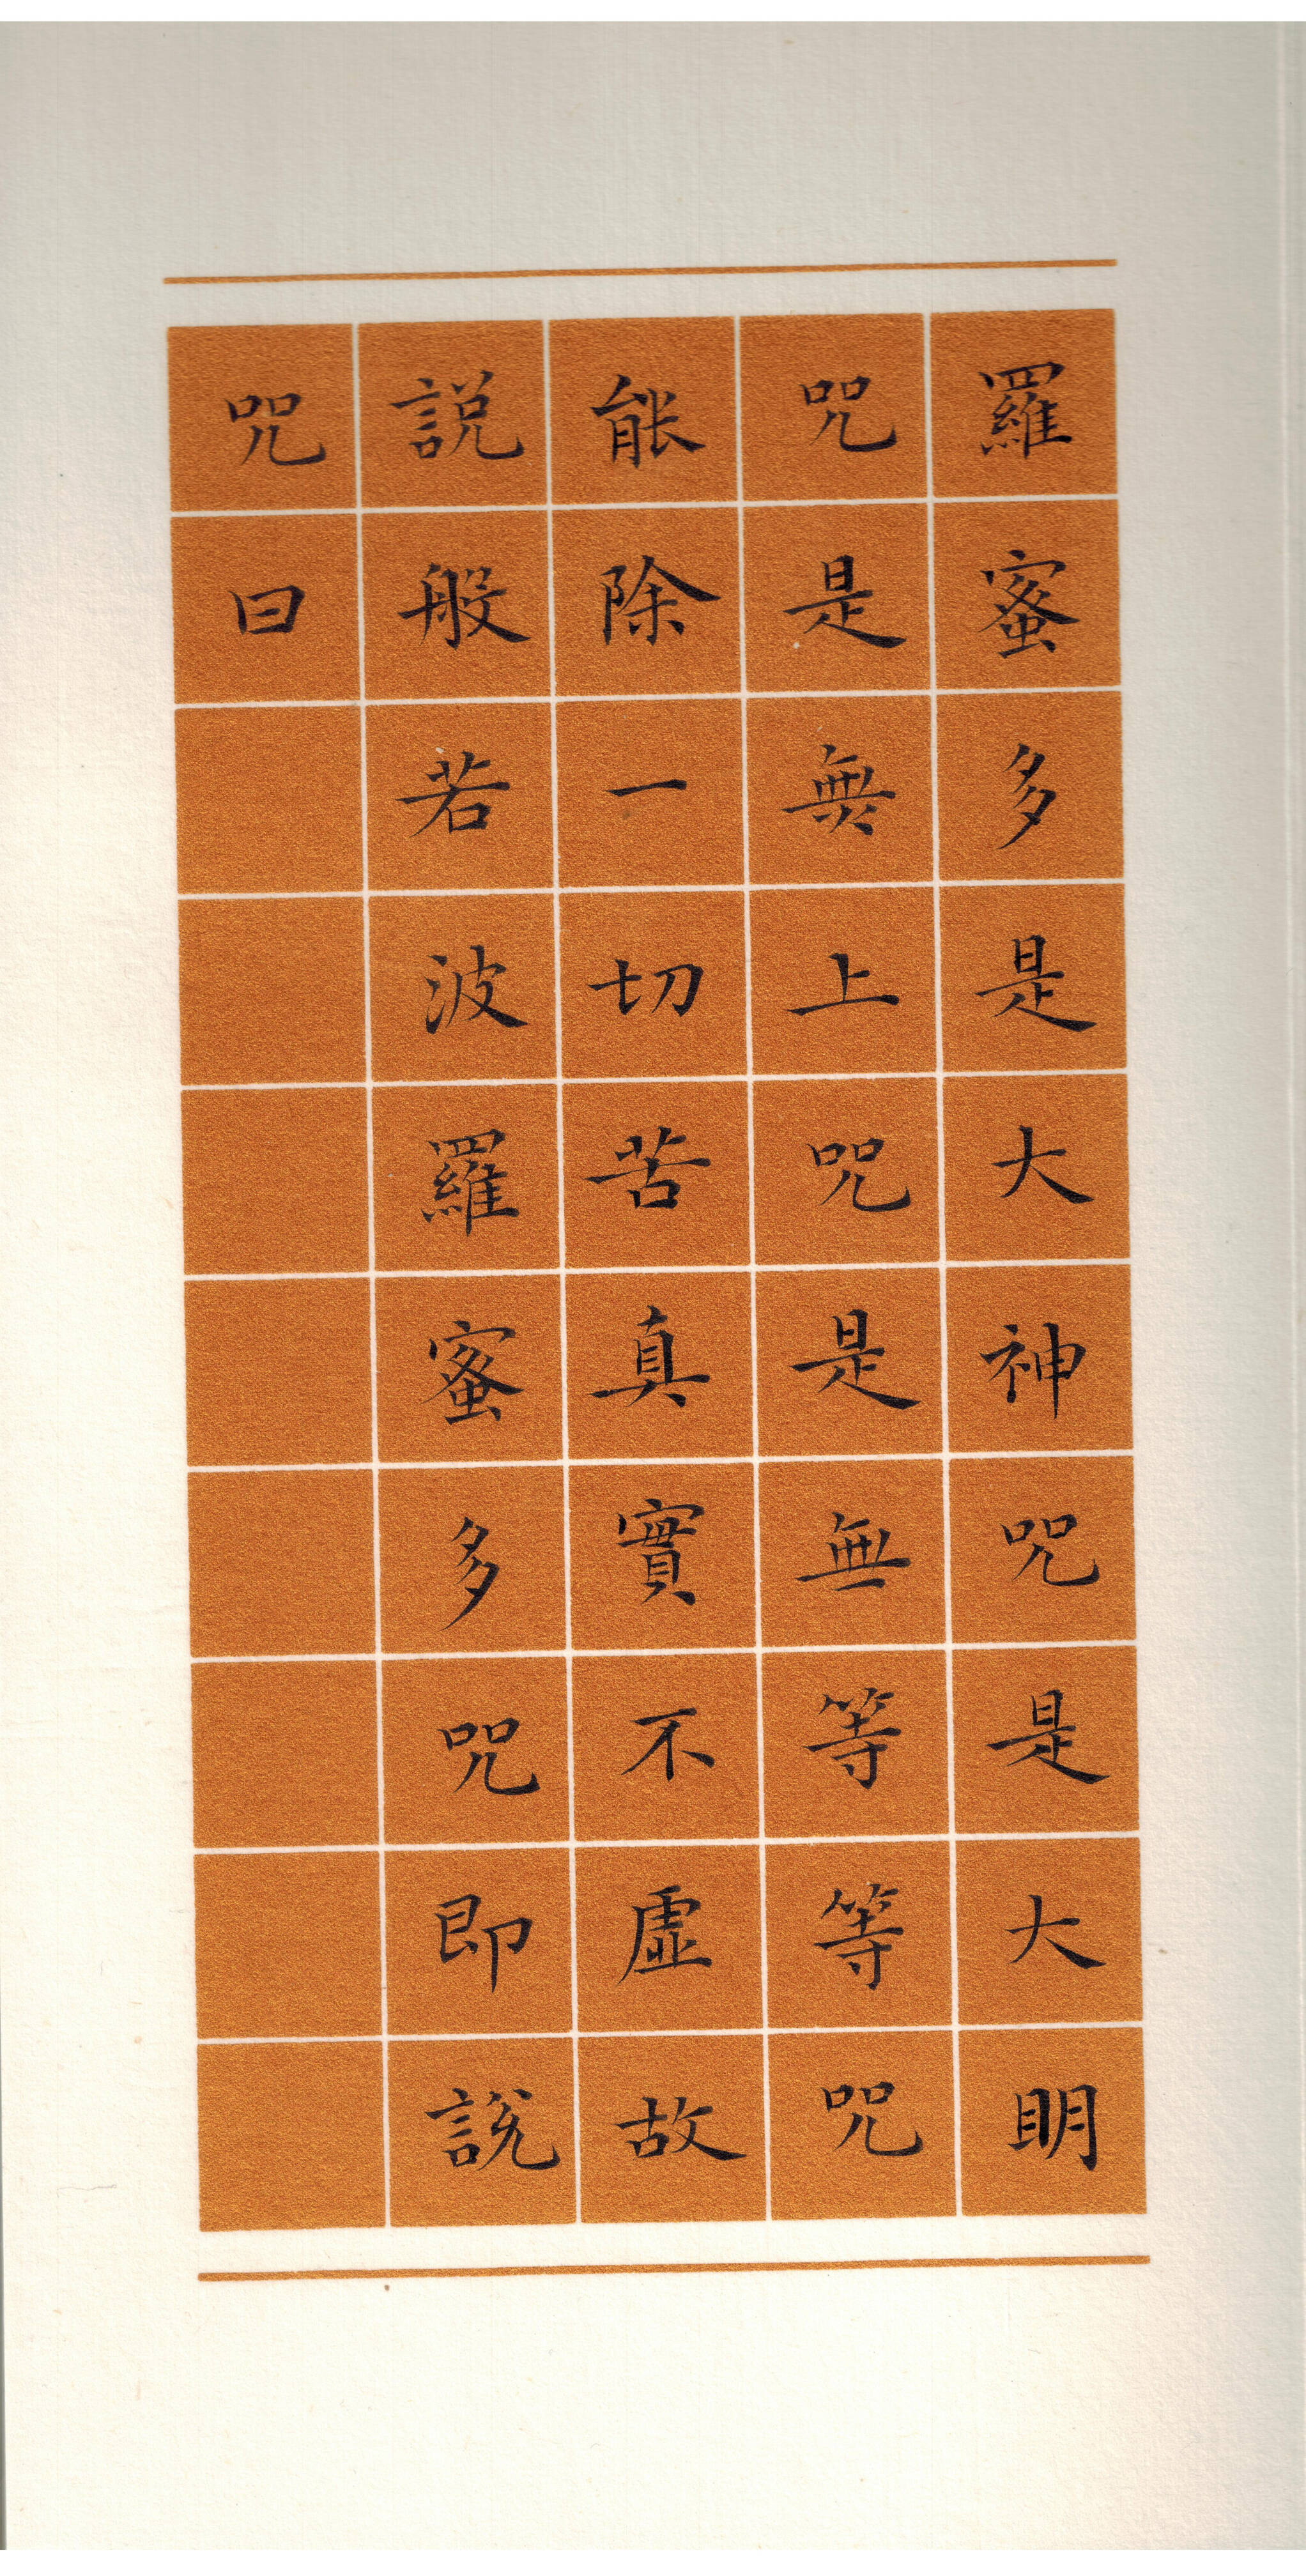 羅蜜多是大神咒是大明
咒是無上咒是無等等咒
能除一切苦真實不虛故
說般若波羅蜜多咒即說
咒曰